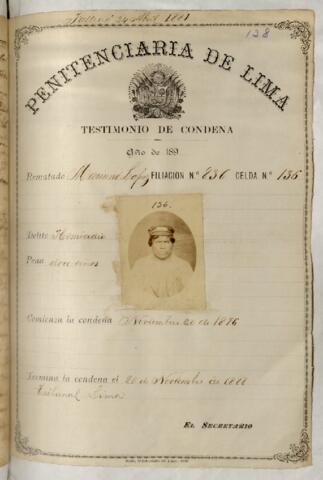 128
PENITENCIARIA DE LIMA
TESTIMONIO DE CONDENA
Año de 189
Rematado Mariano Lopez FILIACION N.º 236 CELDA N.º 136
136.
Delito Homicidio
Pena doce años
Comienza la condena Noviembre 20 de 1876
Termina la condena el 20 de Noviembre de 1888
Tribunal Lima
EL SECRETARIO